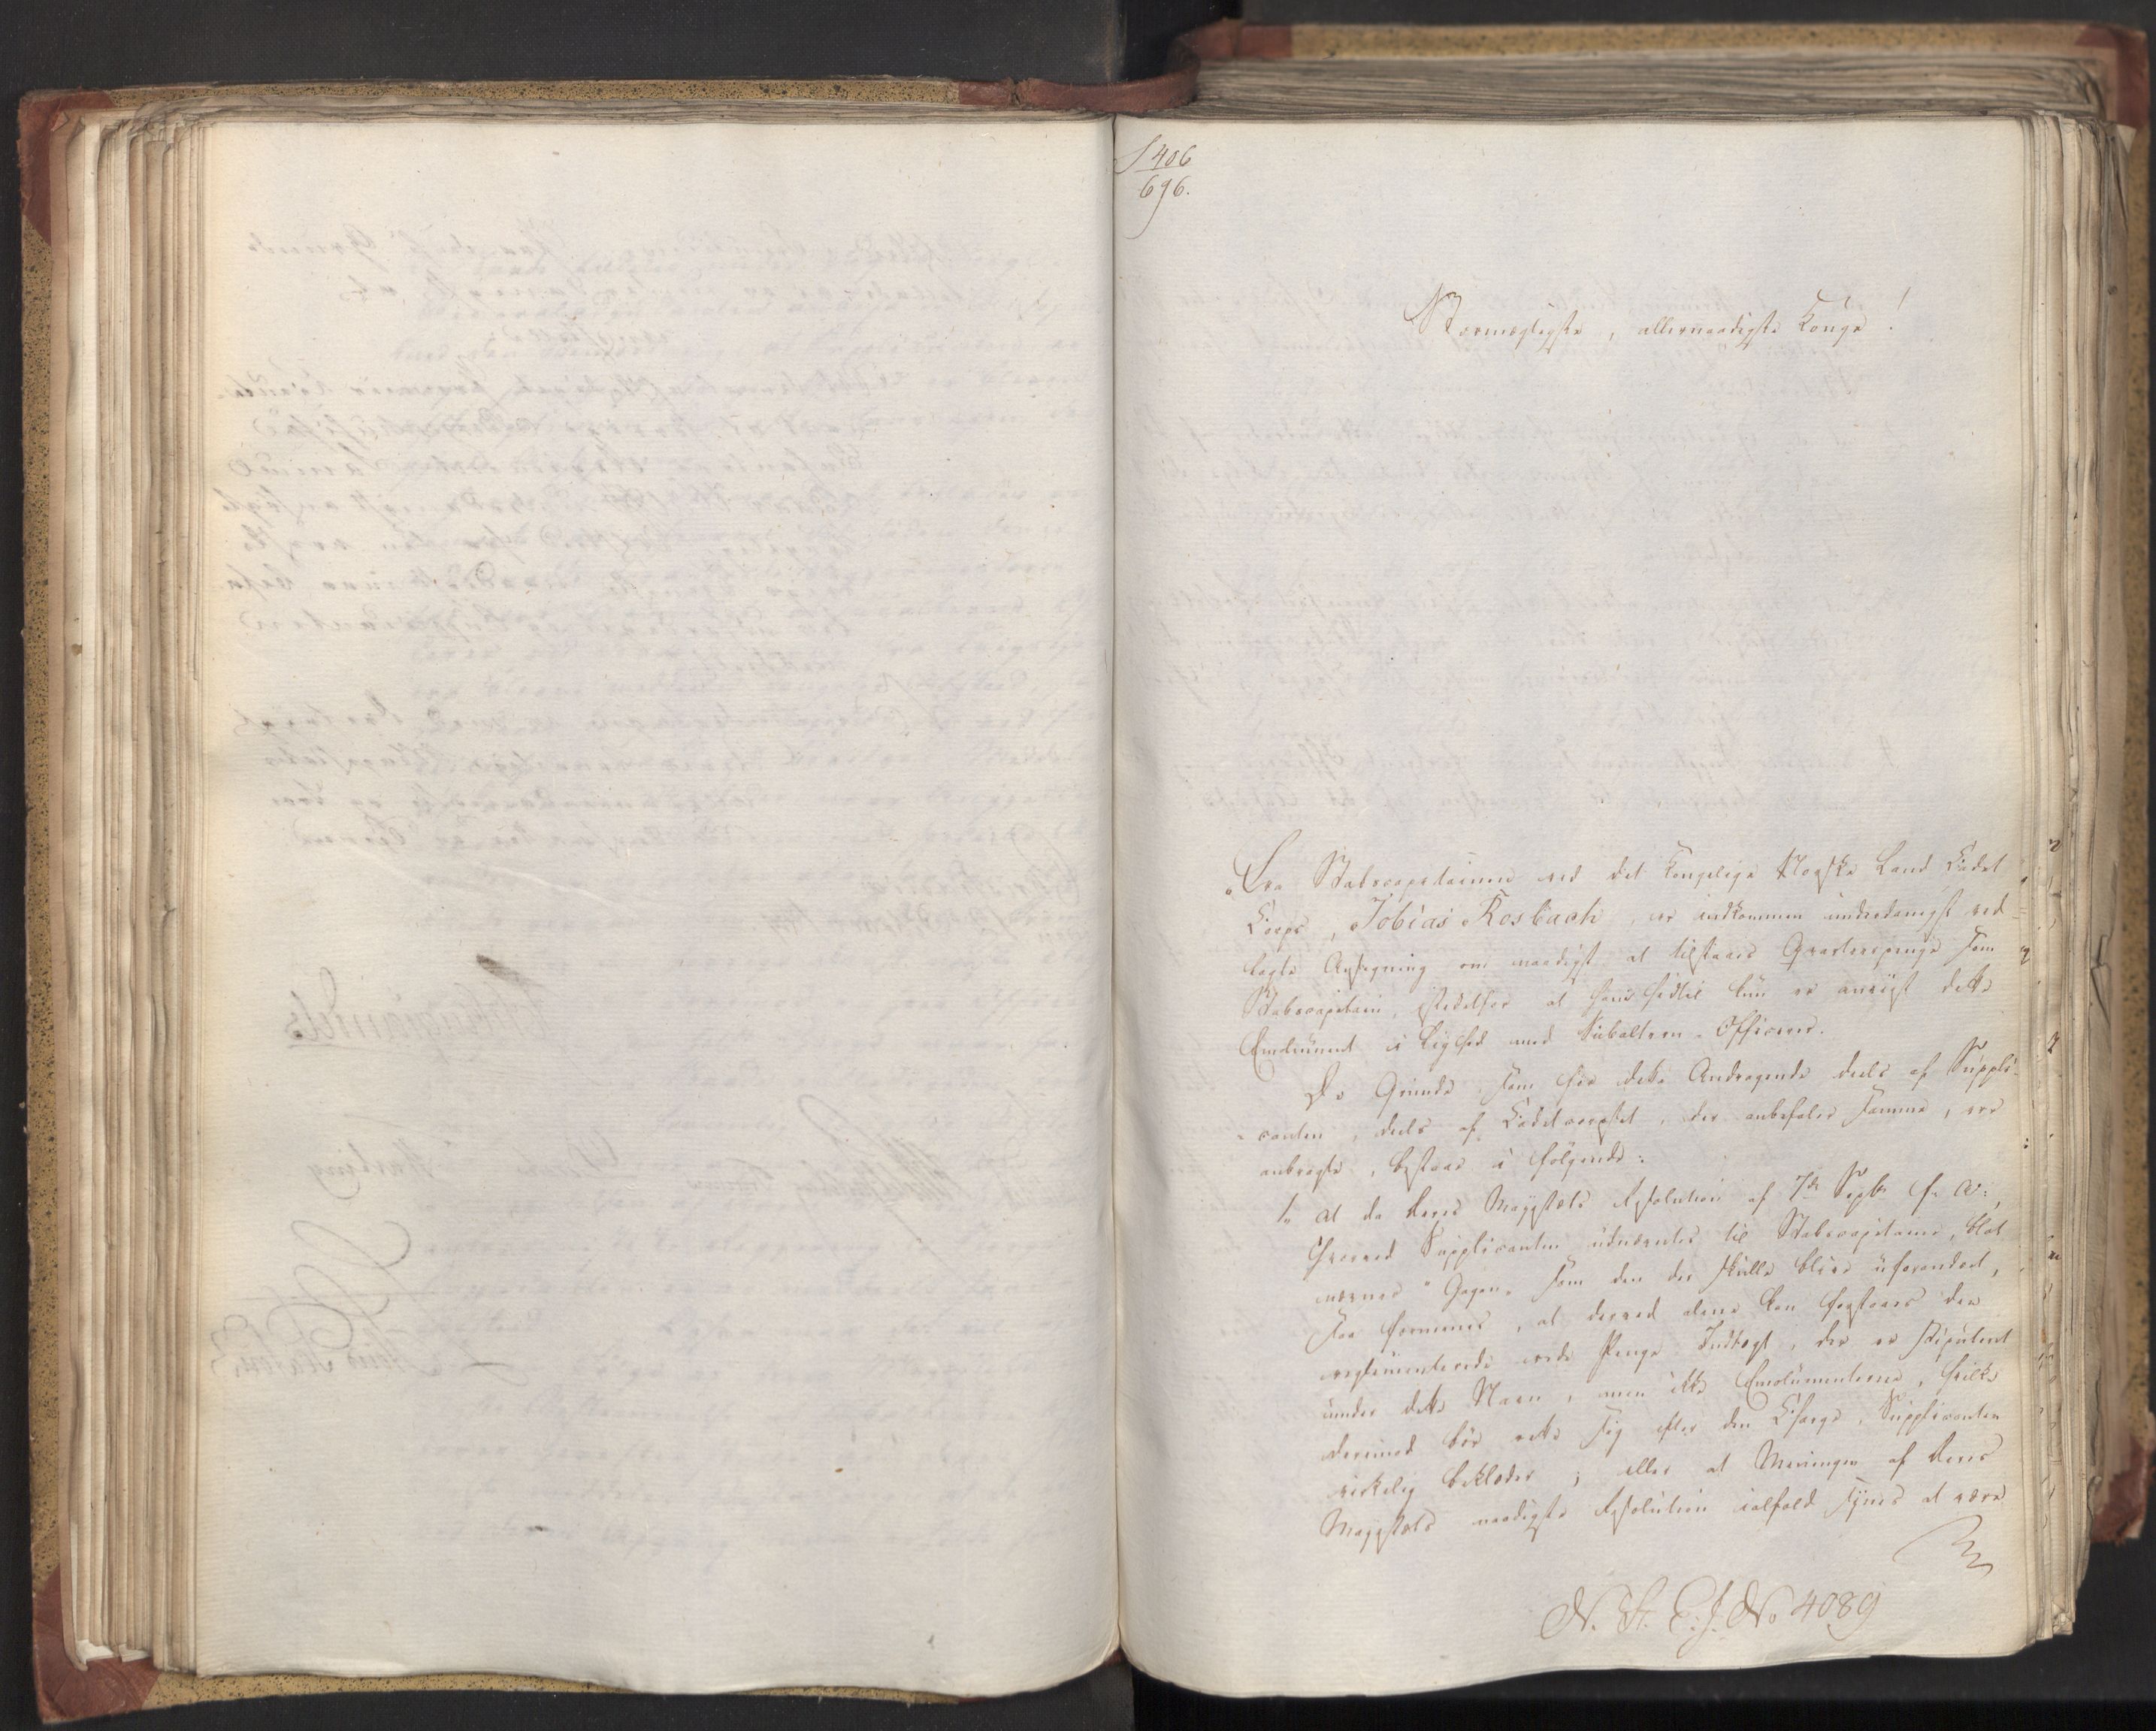 S 406
696.
Stormægtigste, allernaadigste Konge!
Fra Stabscapitainen ved det Kongelige Norske Land Cadet
Corps, Tobias Rosbach, er indkommen underdanigst ved-
lagte Ansøgning om naadigst at tilstaaes Qvarteerpenge som
Stabscapitain, istedetfor at ham hidtil kun er anviist dette
Emolument i Liighed med Subaltern-Officerer.
De Grunde som for dette Andragende deels af Suppli-
canten, deels af Cadetcorpset, der anbefaler samme, ere
anbragte, bestaae i følgende:
1, at da Deres Majestæts Resolution af 7de Septbr f. A:,
hvorved Supplicanten udnævntes til Stabscapitain, blot
nævner "Gagen" som den der skulle blive uforandret,
saa formenes, at derved alene kan forstaaes den
reglementerede Penge Indtægt, der er stipuleret
under dette Navn, men ikke Emolumenterne, hvilke
derimod bør rette sig efter den Charge, Supplicanten
virkelig beklæder; eller at Meningen af Deres
Majestæts naadigste Resolution ialfald synes at være
N. St. E. J. No 4089